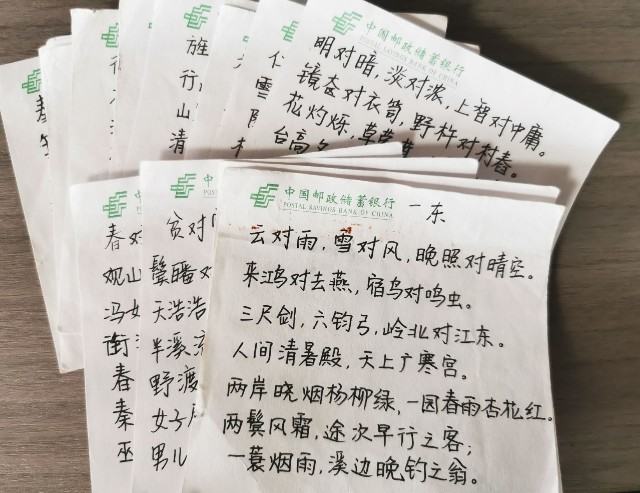 旌
行
山
清
雪
中国邮政储蓄银行
POSTAL SAVINGS BANK OF CHINA
明对暗，淡对浓，上智对中庸。
镜奁对衣笥，野杵对村舂。
花灼烁，草
台高
春对
观山
冯
春
秦
巫
贫对
鬓 对
天浩浩
半溪流
野渡
女子
男儿
中国邮政储蓄银行
POSTAL SAVINGS BANK OF CHINA
一东
云对雨，雪对风，晚照对晴空。
来鸿对去燕，宿鸟对鸣虫。
三尺剑，六钧弓，岭北对江东。
人间清暑殿，天上广寒宫。
两岸晓烟杨柳绿，一园春雨杏花红。
两鬓风霜，途次早行之客；
一蓑烟雨，溪边晚钓之翁。